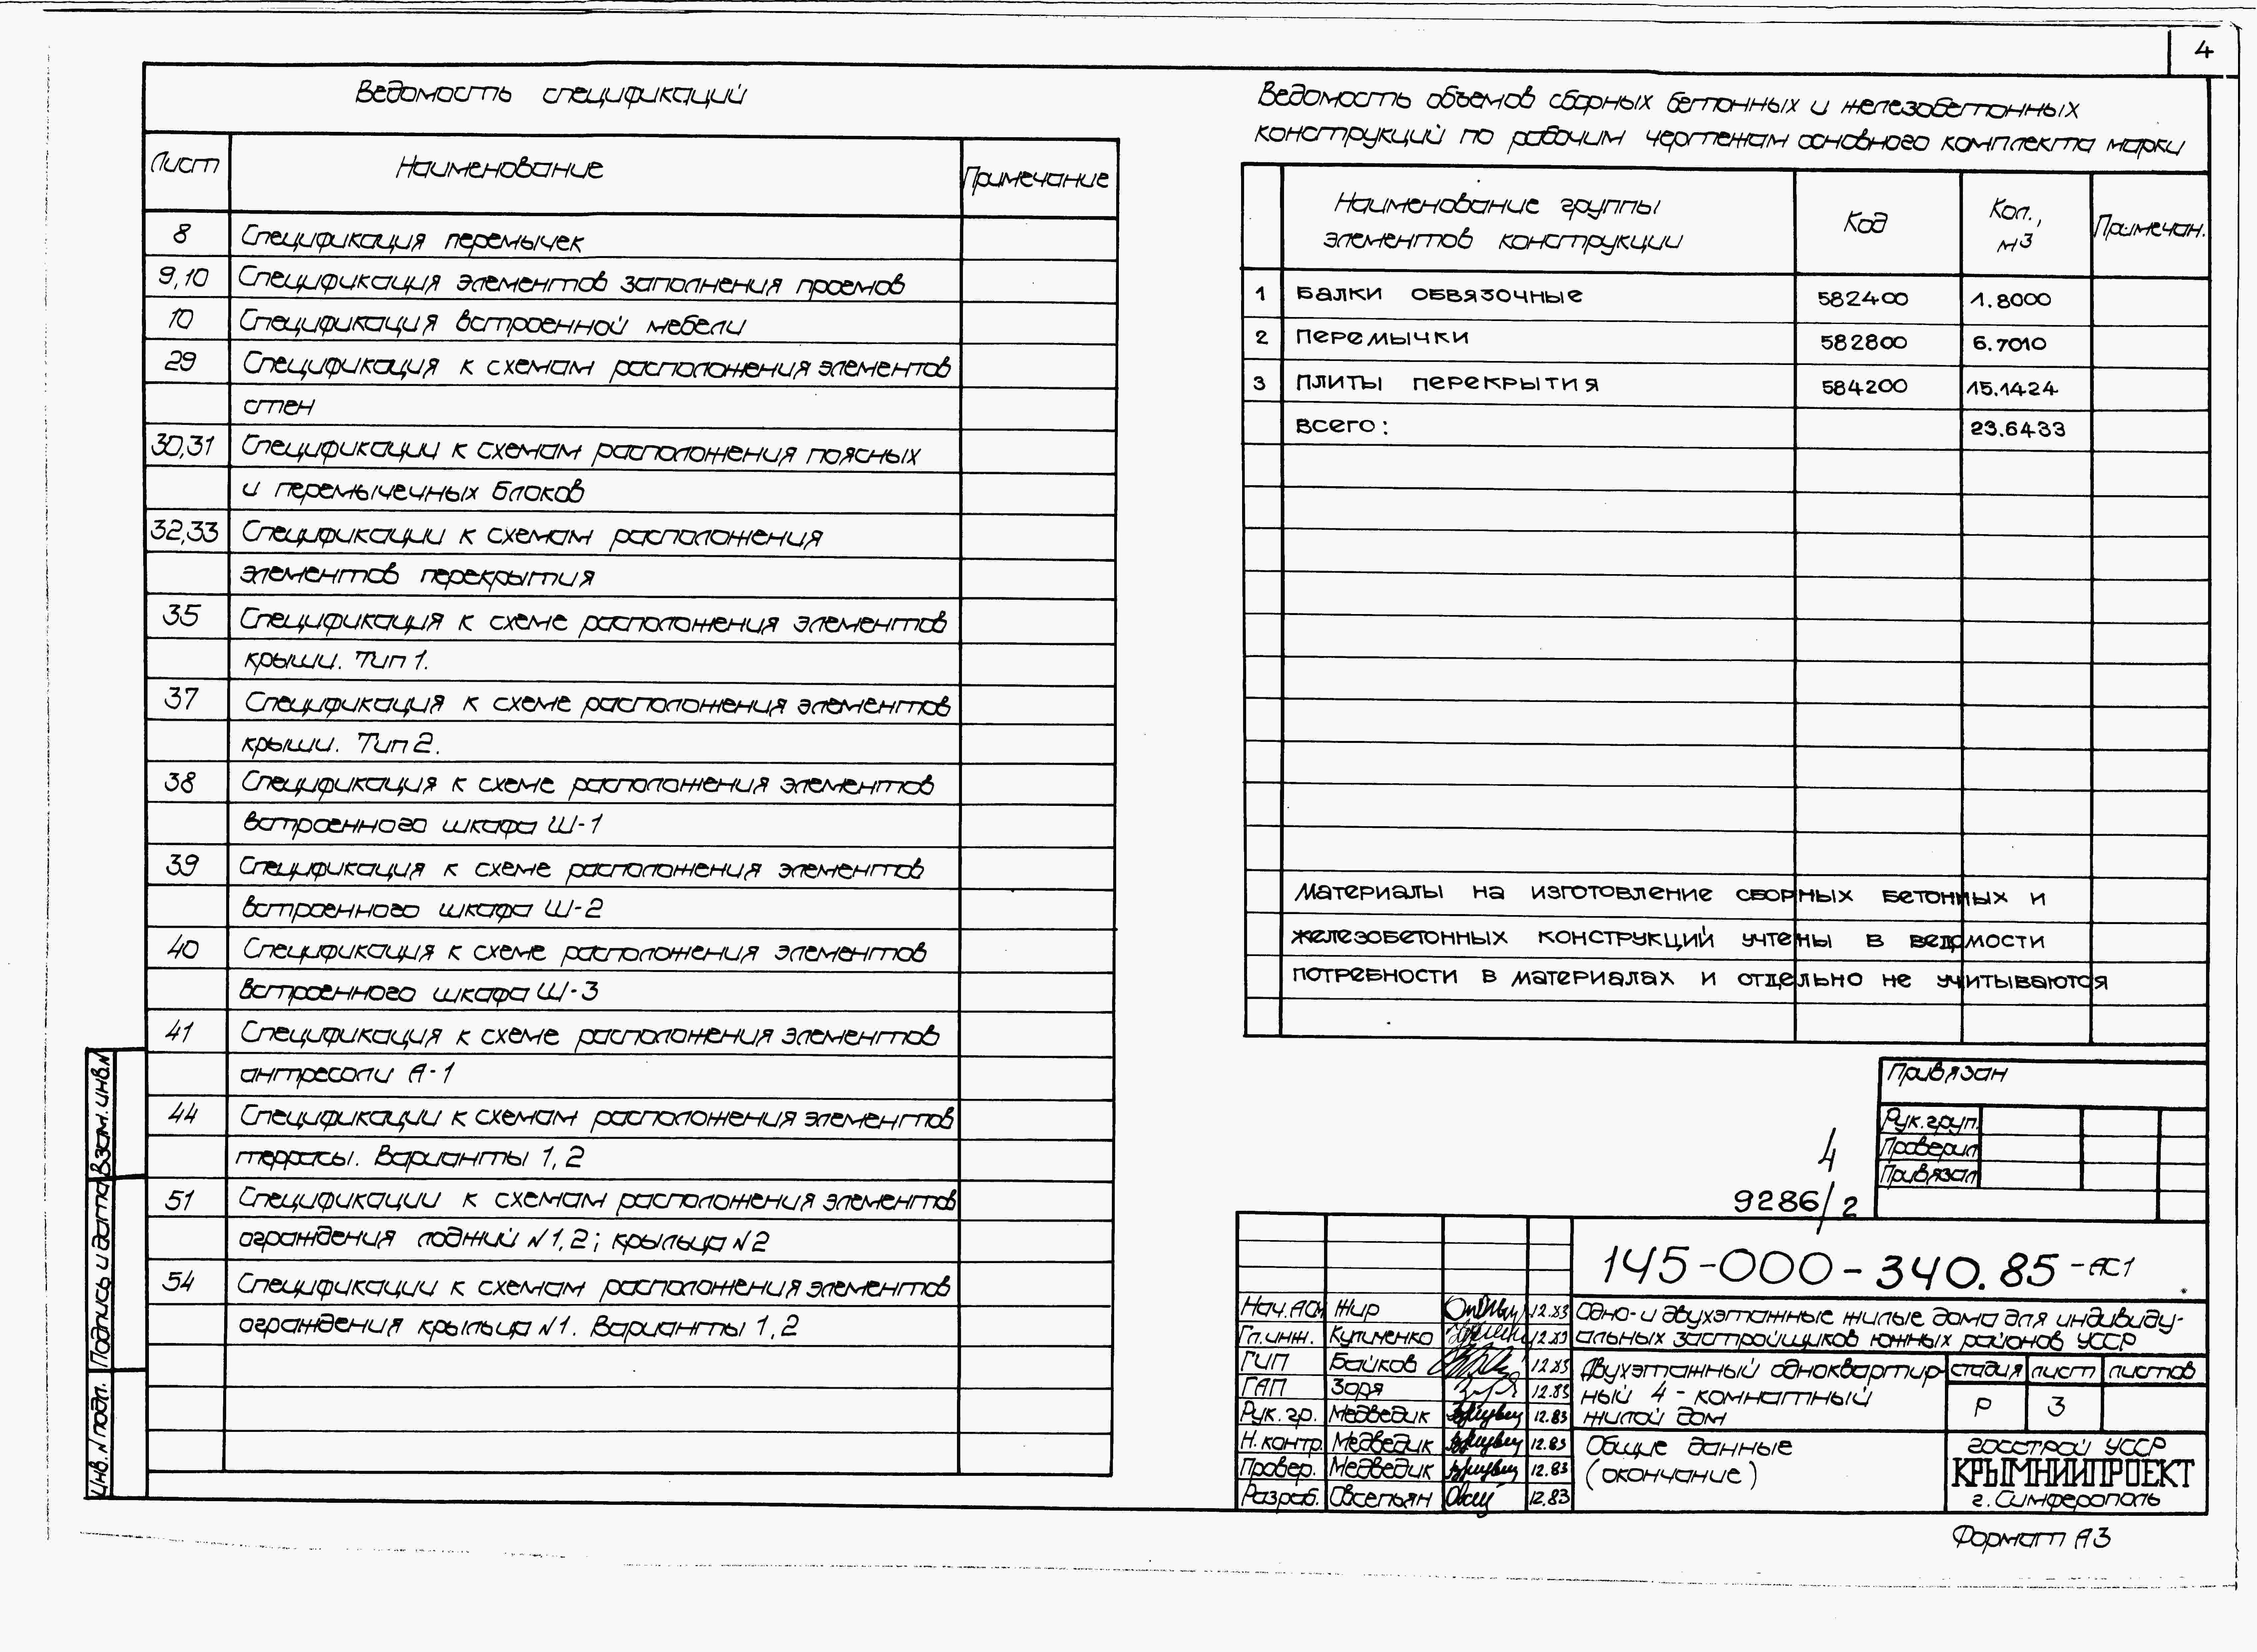 4
Ведомость спецификаций
Лист Наименование Примечание
8 Спецификация перемычек
9,10 Спецификация элементов заполнения проемов
10 Спецификация встроенной мебели
29 Спецификация к схемам расположения элементов
стен
30,31 Спецификации к схемам расположения поясных
и перемычечных блоков
32,33 Спецификации к схемам расположения
элементов перекрытия
35 Спецификация к схеме расположения элементов
крыши. Тип 1.
37 Спецификация к схеме расположения элементов
крыши. Тип 2.
38 Спецификация к схеме расположения элементов
встроенного шкафа Ш-1
39 Спецификация к схеме расположения элементов
встроенного шкафа Ш-2
40 Спецификация к схеме расположения элементов
встроенного шкафа Ш-3
41 Спецификация к схеме расположения элементов
антресоли А-1
44 Спецификации к схемам расположения элементов
террасы. Варианты 1,2
51 Спецификации к схемам расположения элементов
ограждения лоджий N1,2; крыльца N2
54 Спецификации к схемам расположения элементов
ограждения крыльца N1. Варианты 1,2
Ведомость объемов сборных бетонных и железобетонных
конструкций по рабочим чертежам основного комплекта марки
Наименование группы
элементов конструкции
Код
Кол.,
м3
Примечан.
1 Балки обвязочные 582400 1.8000
2 Перемычки 582800 6.7010
3 Плиты перекрытия 584200 15.1424
Всего: 23.6433
Материалы на изготовление сборных бетонных и
железобетонных конструкций учтены в ведомости
потребности в материалах и отдельно не учитываются
Привязан
Рук. груп.
Проверил
Привязал
4
9286/2
145-000-340.85-АС1
Нач. АСМ Жир 12.83
Гл. инж. Куличенко 12.83
ГИП Байков 12.83
ГАП Зоря 12.83
Рук. гр. Медведик 12.83
Н. контр. Медведик 12.83
Провер. Медведик 12.83
Разраб. Овсепьян 12.83
Одно- и двухэтажные жилые дома для индивиду-
альных застройщиков южных районов УССР
Двухэтажный одноквартир-
ный 4-комнатный
жилой дом
стадия лист листов
Р 3
Общие данные
(окончание)
Госстрой УССР
КРЫМНИИПРОЕКТ
г. Симферополь
Формат А3
Взам. инв. N
Подпись и дата
Инв. N подл.